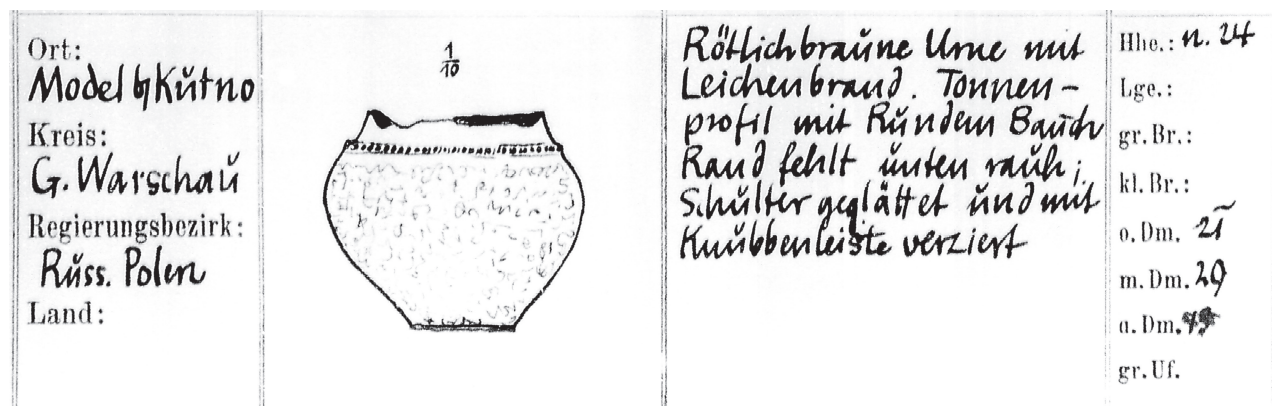 Ort:
Model b/Kutno
Kreis:
G. Warschau
Regierungsbezirk:
Russ. Polen
Land:
1/10
Rötlichbraune Urne mit
Leichenbrand. Tonnen-
profil mit Rundem Bauch
Rand fehlt unten rauh;
Schulter geglättet und mit
Knubbenleiste verziert
Hhe.: n. 24
Lge.:
gr. Br.:
kl. Br.:
o. Dm. 21
m. Dm. 29
u. Dm.
gr. Uf.